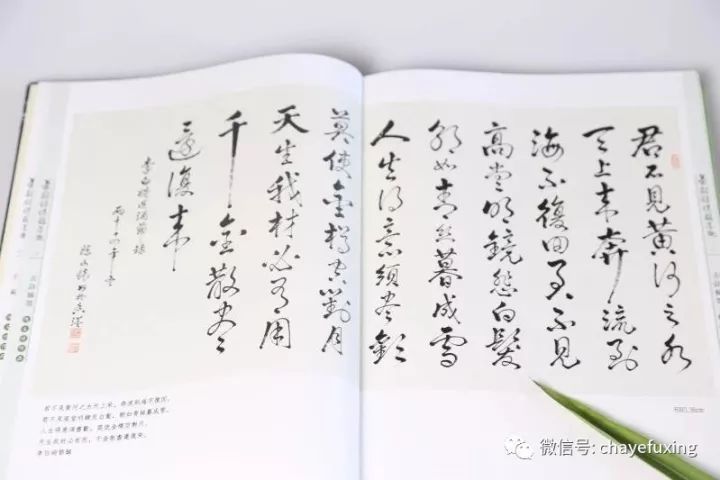 君不见黄河之水
天上来奔流到
海不復回君不见
高堂明鏡悲白髮
朝如青丝暮成雪
人生得意须尽歡
莫使金樽空對月
天生我材必有用
千金散尽
還復来
李白将进酒節録
君不見黃河之水天上來，奔流到海不復回。
君不見高堂明鏡悲白髮，朝如青絲暮成雪。
人生得意須盡歡，莫使金樽空對月。
天生我材必有用，千金散盡還復來。
李白詩節錄
微信号: chayefuxing